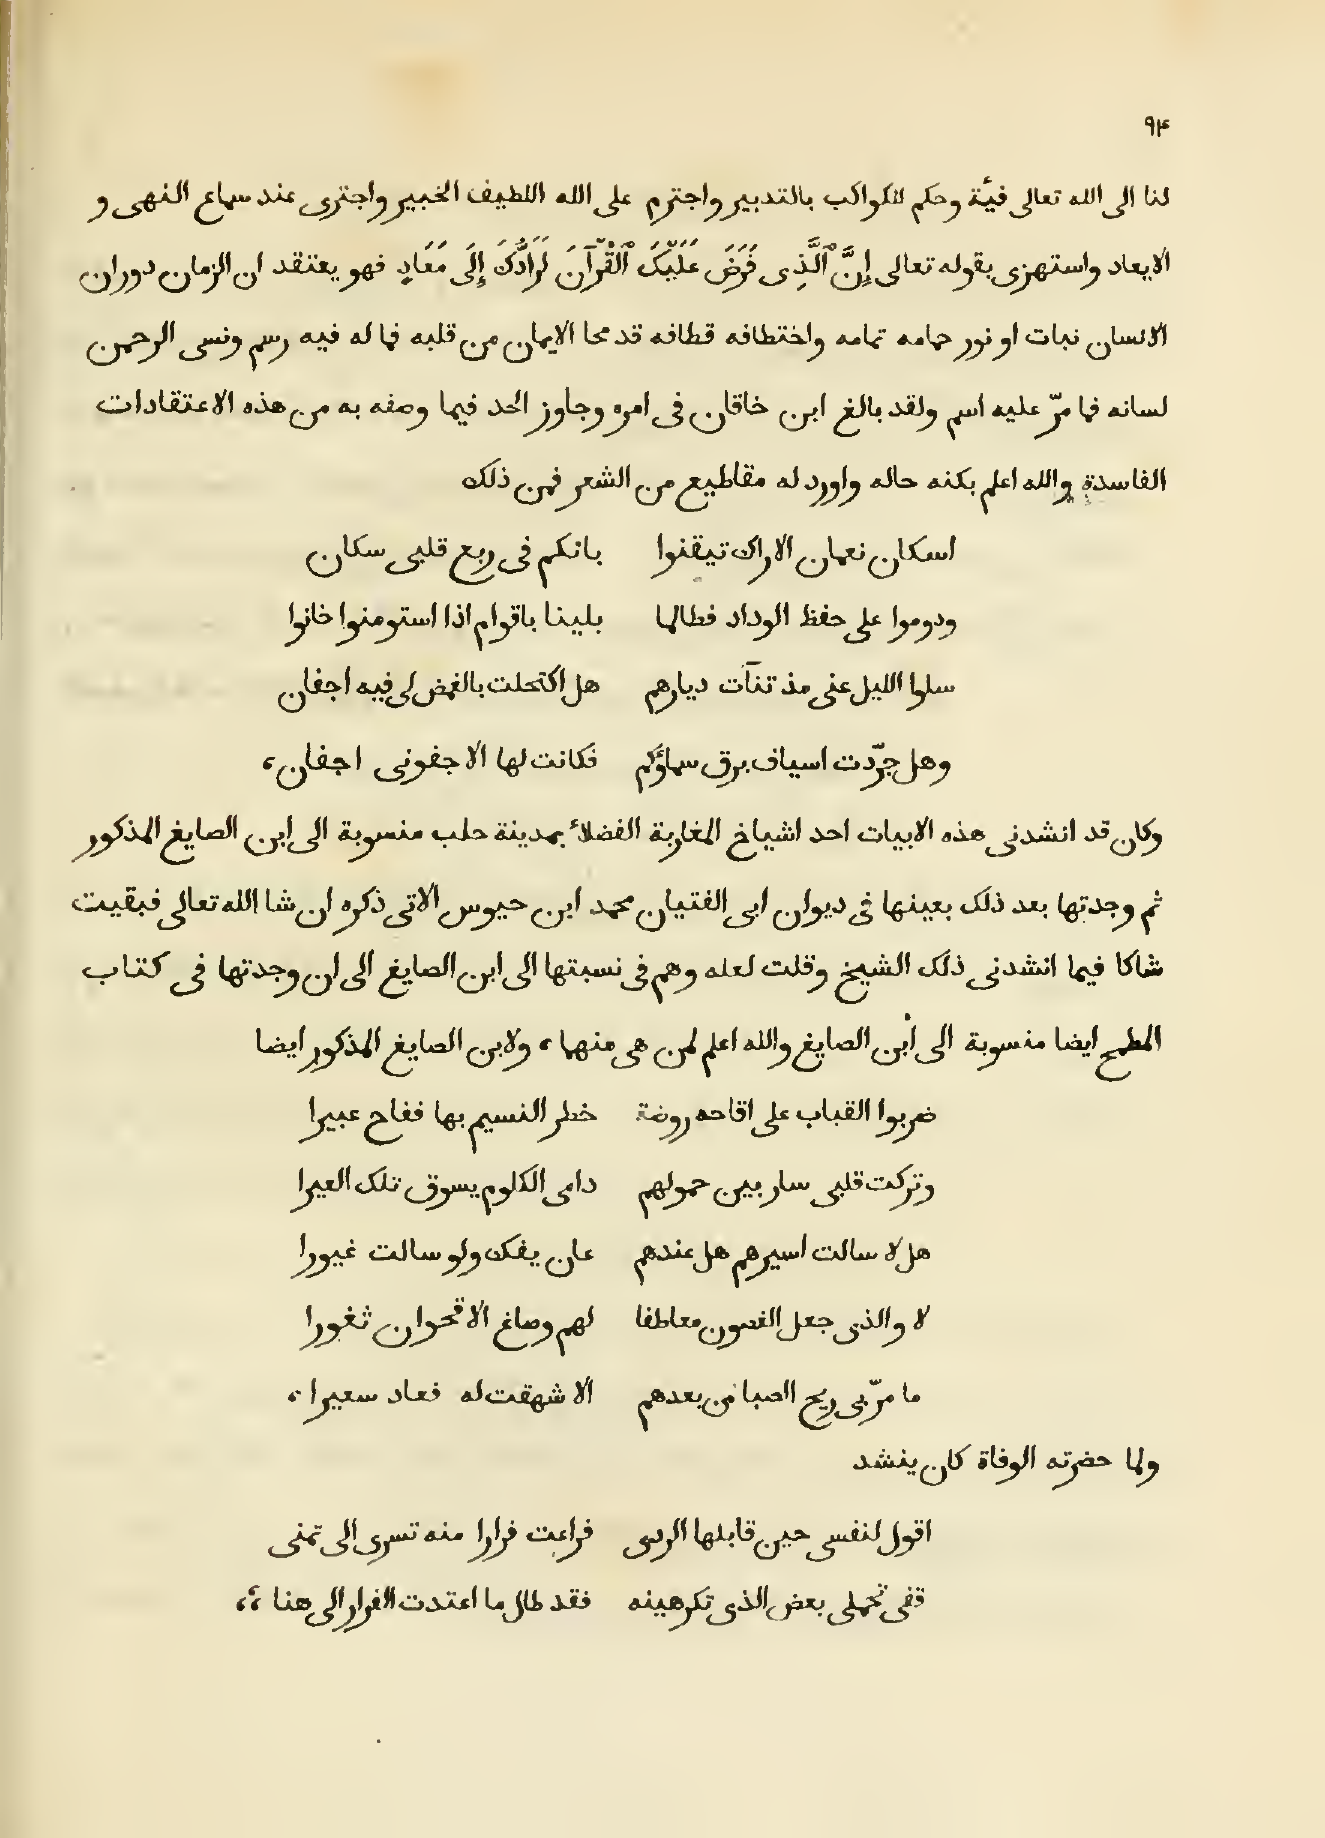 ٩۴
لنا الى الله تعالى فيئة وحكم للكواكب بالتدبير واجترم على الله اللطيف الخبير واجترى عند سماع النهى و
الايعاد واستهزى بقوله تعالى إِنَّ ٱلَّذِى فَرَضَ عَلَيْكَ ٱلْقُرْآنَ لَرَادُّكَ إِلَى مَعَادٍ فهو يعتقد ان الزمان دوران
الانسان نبات او نور حمامه تمامه واختطافه قطافه قد محا الايمان من قلبه فما له فيه رسم ونسى الرحمن
لسانه فما مرّ عليه اسم ولقد بالغ ابن خاقان فى امره وجاوز الحد فيما وصفه به من هذه الاعتقادات
الفاسدة والله اعلم بكنه حاله واورد له مقاطيع من الشعر فمن ذلك
اسكان نعمان الاراك تيقنوا بانكم فى ربع قلبى سكان
ودوموا على حفظ الوداد فطالما بلينا باقوام اذا استومنوا خانوا
سلوا الليل عنى مذ تنآت ديارهم هل اكتحلت بالغمض لى فيه اجفان
وهل جرّدت اسياف برق سماؤكم فكانت لها الا جفونى اجفان،
وكان قد انشدنى هذه الابيات احد اشياخ المغاربة الفضلاء بمدينة حلب منسوبة الى ابن الصايغ المذكور
ثم وجدتها بعد ذلك بعينها فى ديوان ابى الفتيان محمد ابن حيوس الاتى ذكره ان شا الله تعالى فبقيت
شاكا فيما انشدنى ذلك الشيخ وقلت لعله وهم فى نسبتها الى ابن الصايغ الى ان وجدتها فى كتاب
المطمح ايضا منسوبة الى أبن الصايغ والله اعلم لمن هى منهما، ولابن الصايغ المذكور ايضا
ضربوا القباب على اقاحه روضة خطر النسيم بها ففاح عبيرا
وتركت قلبى سار بين حمولهم دامى الكلوم يسوق تلك العيرا
هلا سالت اسيرهم هل عندهم عان يفك ولو سالت غيورا
لا والذى جعل الغصون معاطفا لهم وصاغ الاقحوان ثغورا
ما مرّ بى ريح الصبا من بعدهم الا شهقت له فعاد سعيرا،
ولما حضرته الوفاة كان ينشد
اقول لنفسى حين قابلها الردى فراعت فرارا منه تسرى الى تمنى
قفى تحملى بعض الذى تكرهينه فقد طال ما اعتدت الفرار الى هنا،،